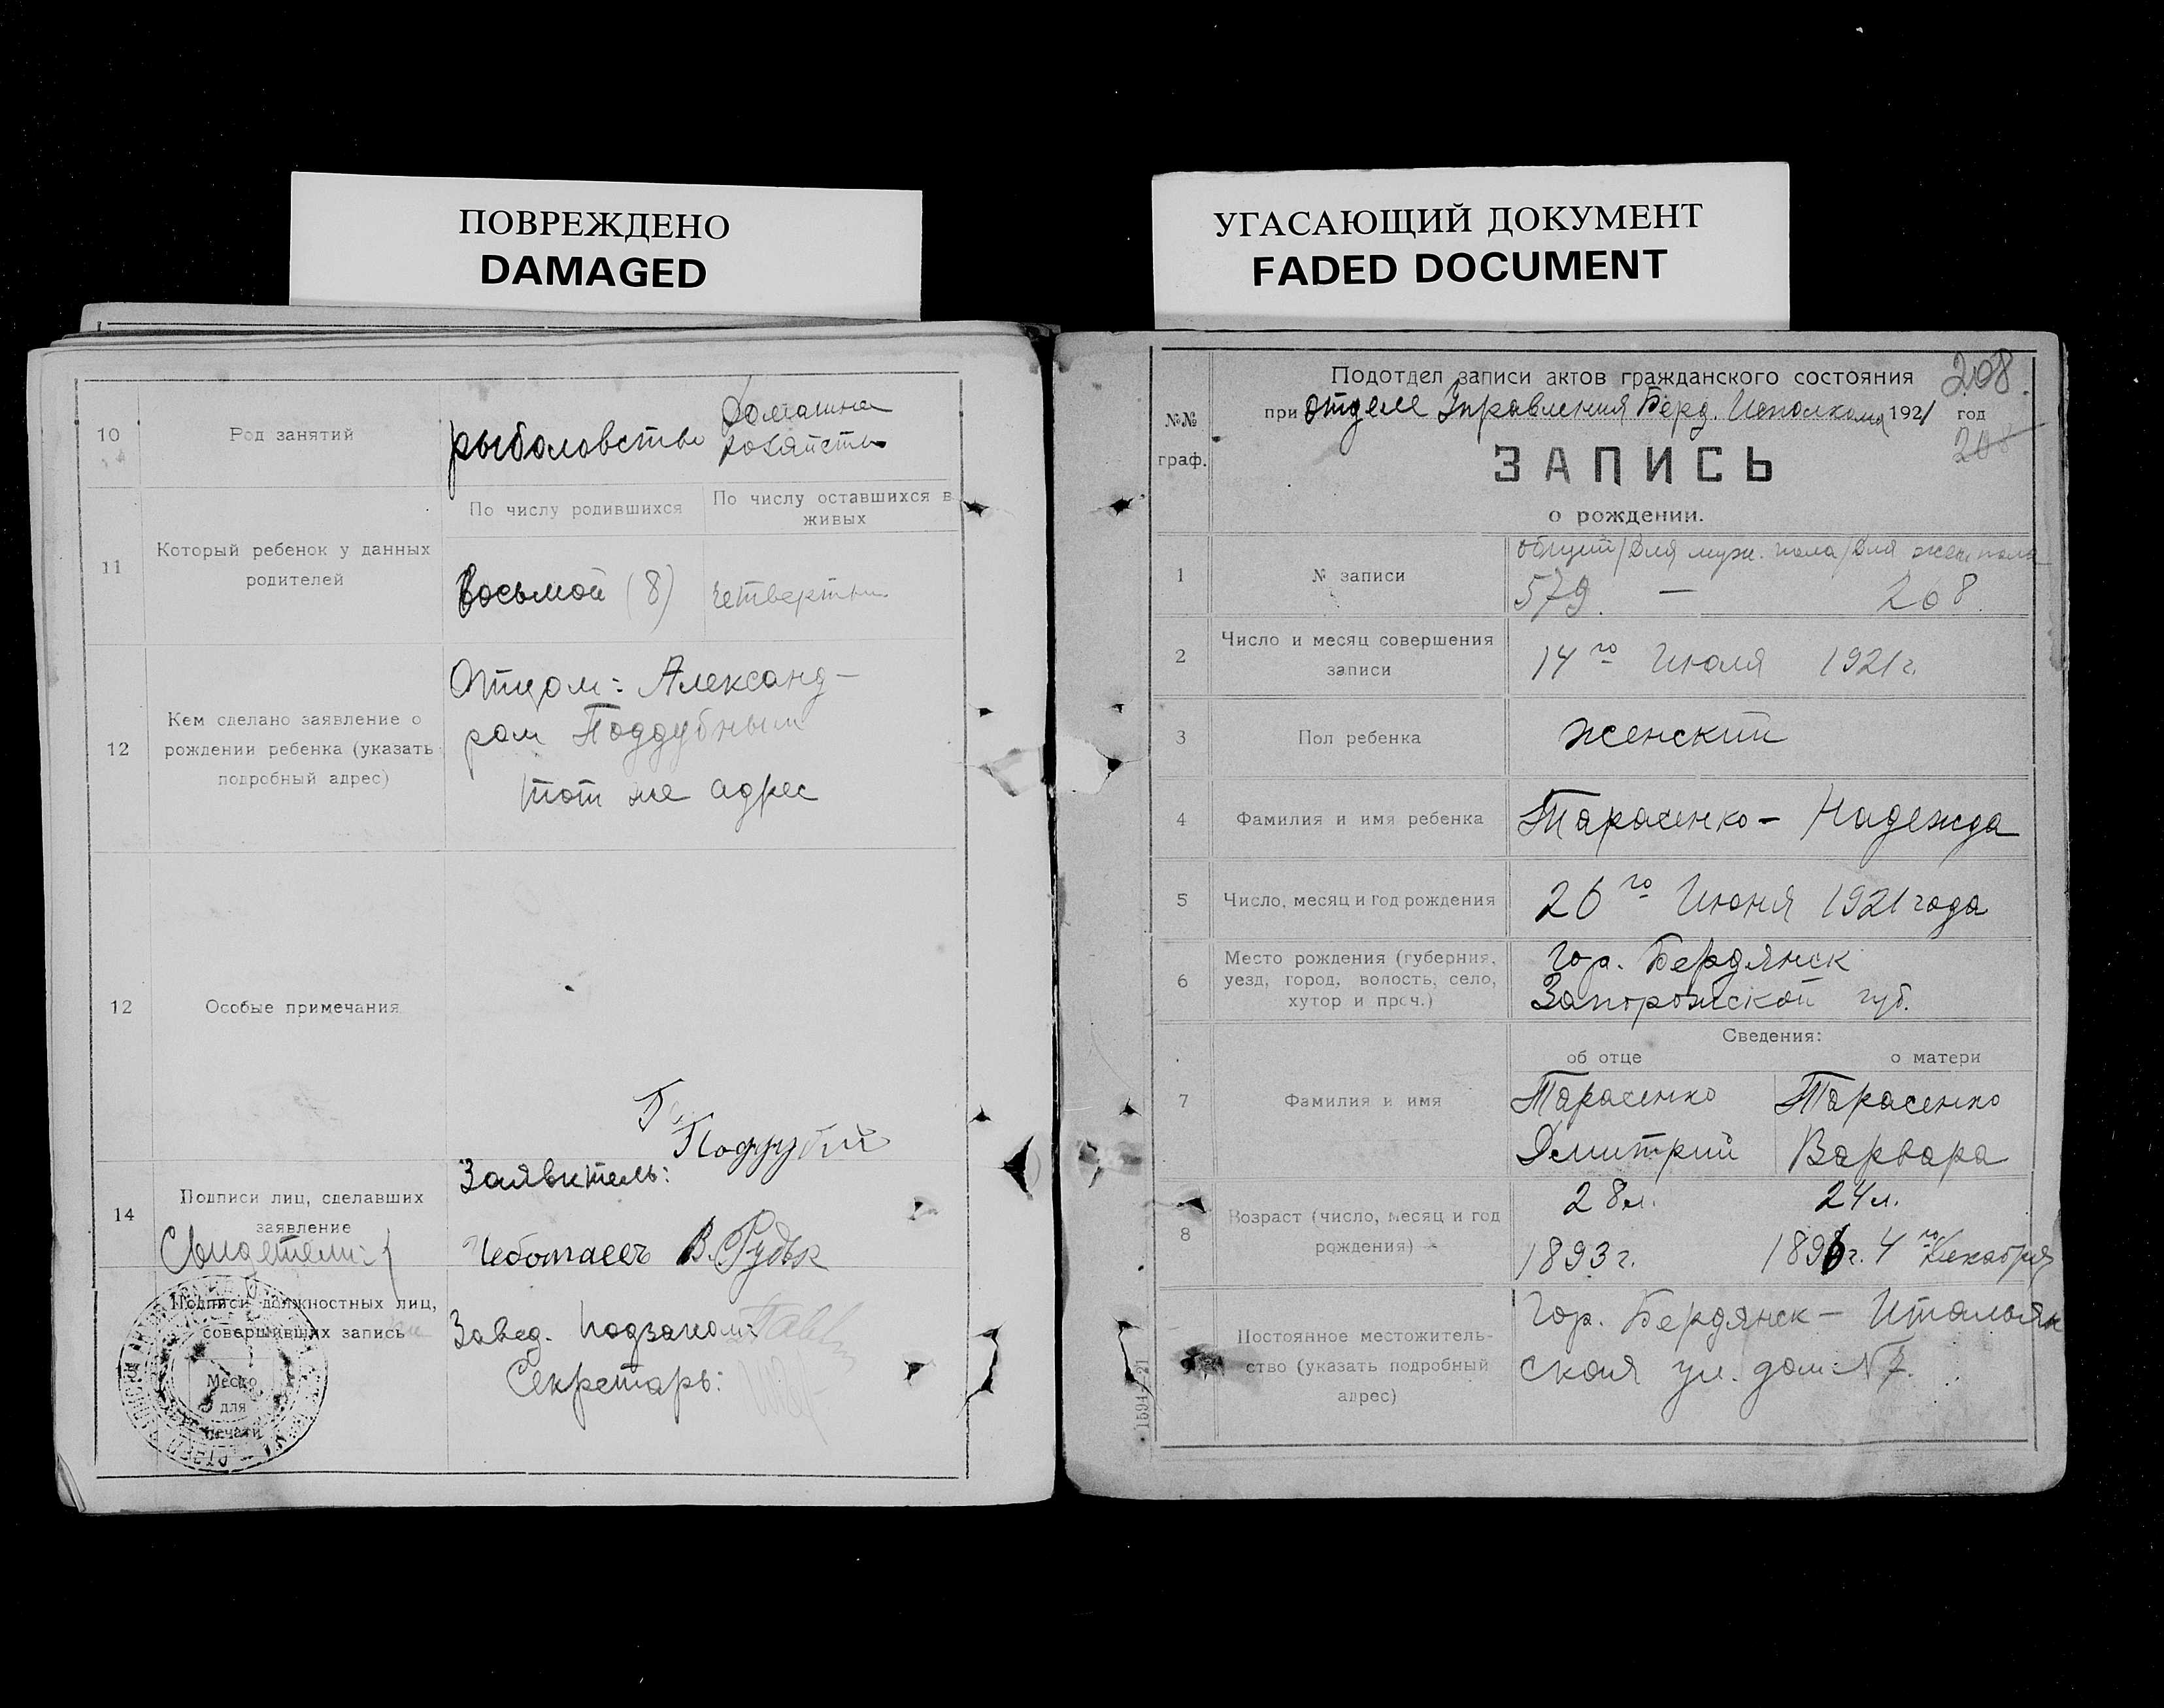 ПОВРЕЖДЕНО
DAMAGED
10
Род занятий
рыболовство
Домашнее
хозяйство
11
Который ребенок у данных
родителей
По числу родившихся
По числу оставшихся в
живых
Восьмой (8)
четвертый
12
Кем сделано заявление о
рождении ребенка (указать
подробный адрес)
Отцом: Александ-
ром Поддубным
тот же адрес
12
Особые примечания
Поддубный
14
Подписи лиц, сделавших
заявление
Заявитель:
Свидетели:
Чеботаевъ В. Рудь
Подписи должностных лиц,
совершивших запись
Место
для
печати
Завед. подзагсом:
Секретарь:
УГАСАЮЩИЙ ДОКУМЕНТ
FADED DOCUMENT
208
№№
граф.
Подотдел записи актов гражданского состояния
при Отделе Управления Берд. Исполкома 1921 год
208
ЗАПИСЬ
о рождении.
1
№ записи
общий/для муж. пола/для жен. пола
579. — 208.
2
Число и месяц совершения
записи
14го Июля 1921 г.
3
Пол ребенка
женский
4
Фамилия и имя ребенка
Тарасенко - Надежда
5
Число, месяц и год рождения
26го Июня 1921 года
6
Место рождения (губерния,
уезд, город, волость, село,
хутор и проч.)
гор. Бердянск
Запорожской губ.
Сведения:
об отце
о матери
7
Фамилия и имя
Тарасенко
Дмитрий
Тарасенко
Варвара
8
Возраст (число, месяц и год
рождения)
28 л.
1893 г.
24 л.
1896 г. 4го Декабря
Постоянное местожитель-
ство (указать подробный
адрес)
Гор. Бердянск - Итальян
ская ул. дом № 7.
1594—21